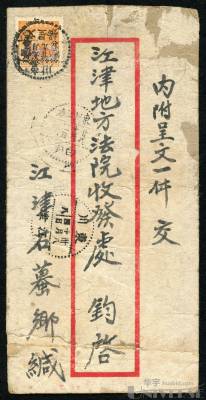 内附呈文一件 交
江津地方法院收發處 鈞啓
江津石蟇鄉緘
東川
華宇 huabid.com